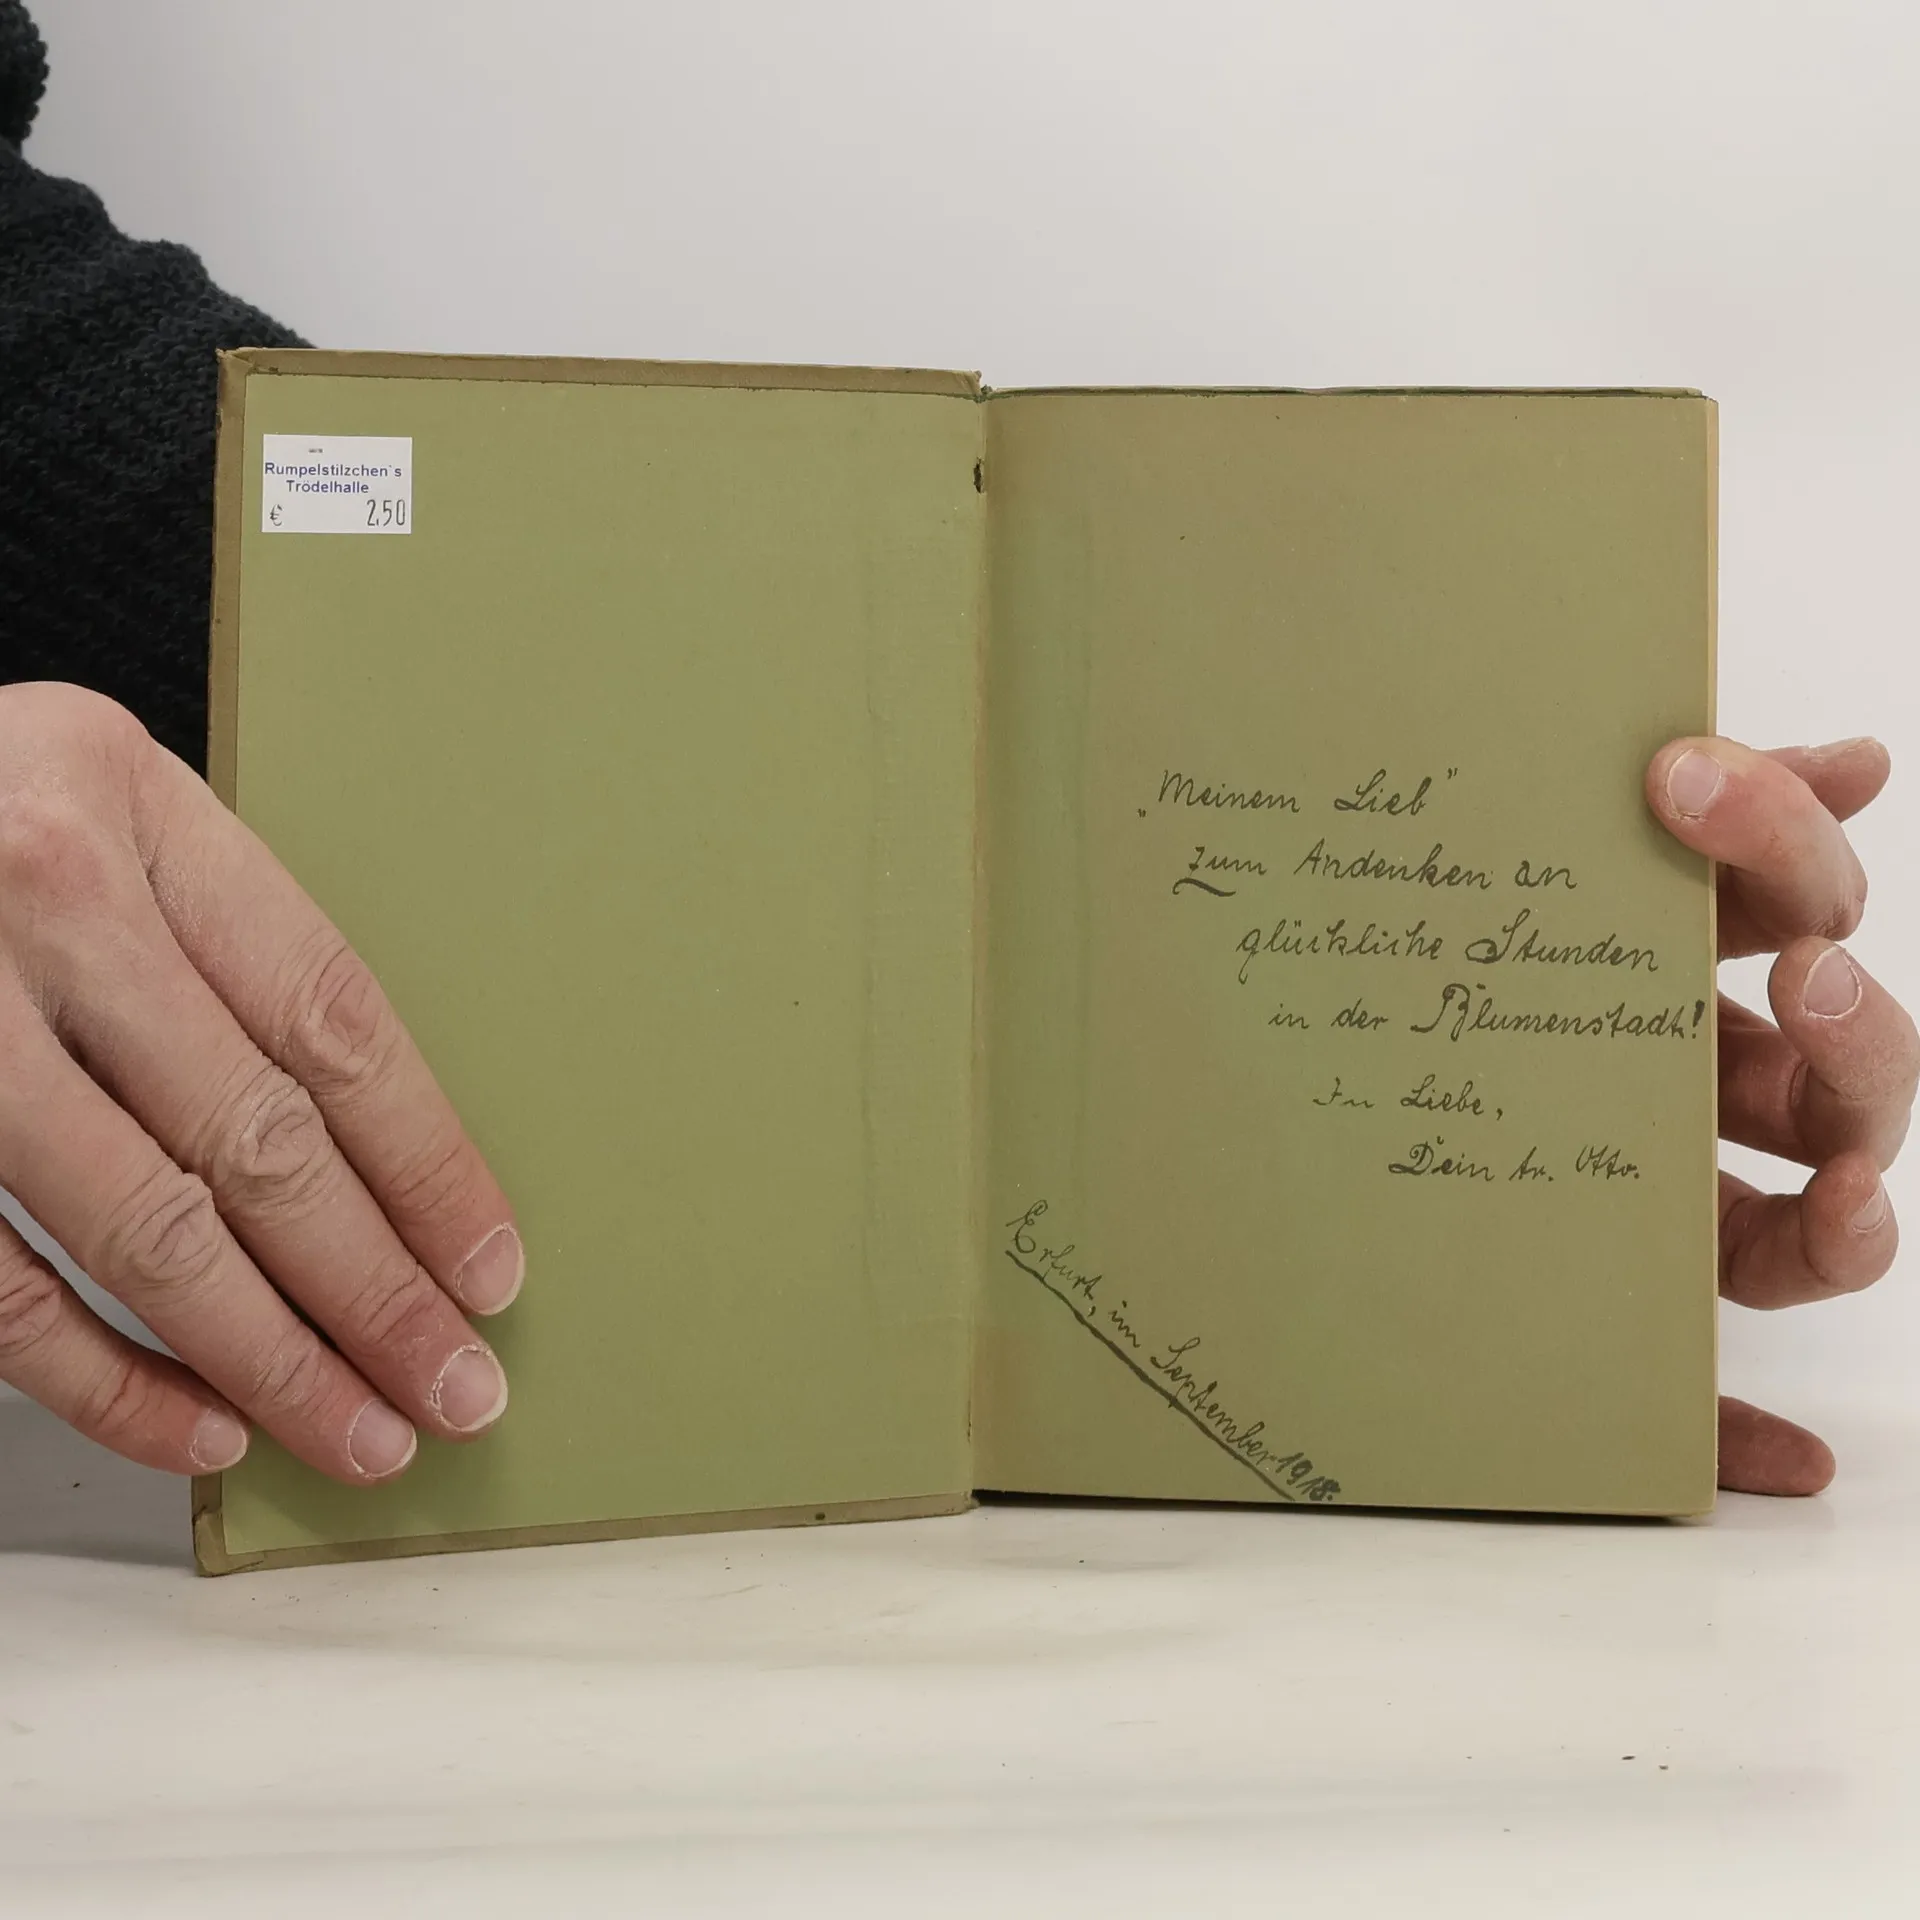 Rumpelstilzchen`s
Trödelhalle
€ 2,50
„Meinem Lieb"
zum Andenken an
glückliche Stunden
in der Blumenstadt!
In Liebe,
Dein tr. Otto.
Erfurt, im September 1918.